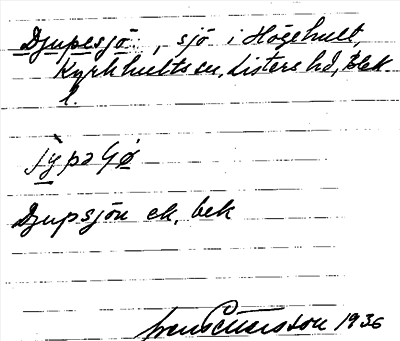 Djupesjö, sjö i Högehult,
Kyrkhults sn, Listers hd, Blek.
l.
Djupsjön ek, bek
1936